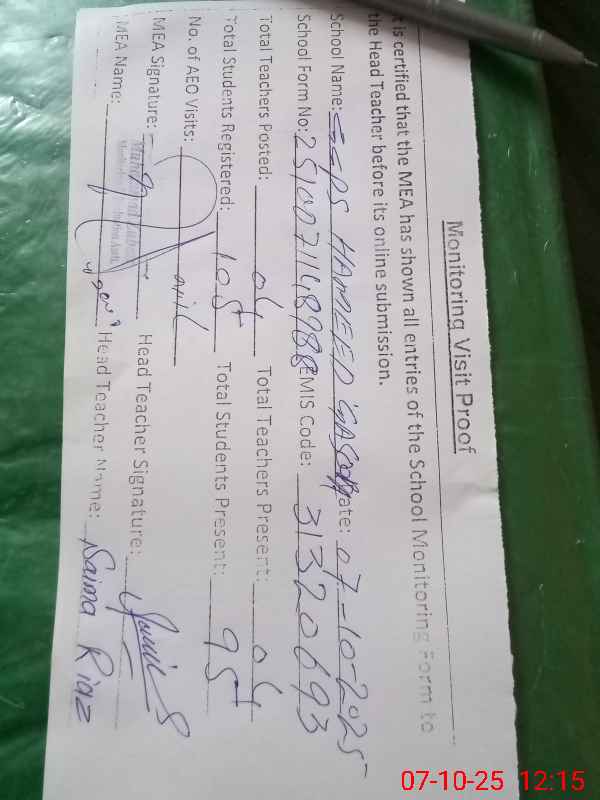 Monitoring Visit Proof
t is certified that the MEA has shown all entries of the School Monitoring Form to
the Head Teacher before its online submission.
School Name: GGPS HAMEED Date: 07-10-2025
School Form No: 2510071148988 EMIS Code: 31320693
Total Teachers Posted: 04 Total Teachers Present: 04
Total Students Registered: 105 Total Students Present: 95
No. of AEO Visits: nil
MEA Signature: Head Teacher Signature:
MEA Name: Head Teacher Name: Saima Riaz
07-10-25 12:15